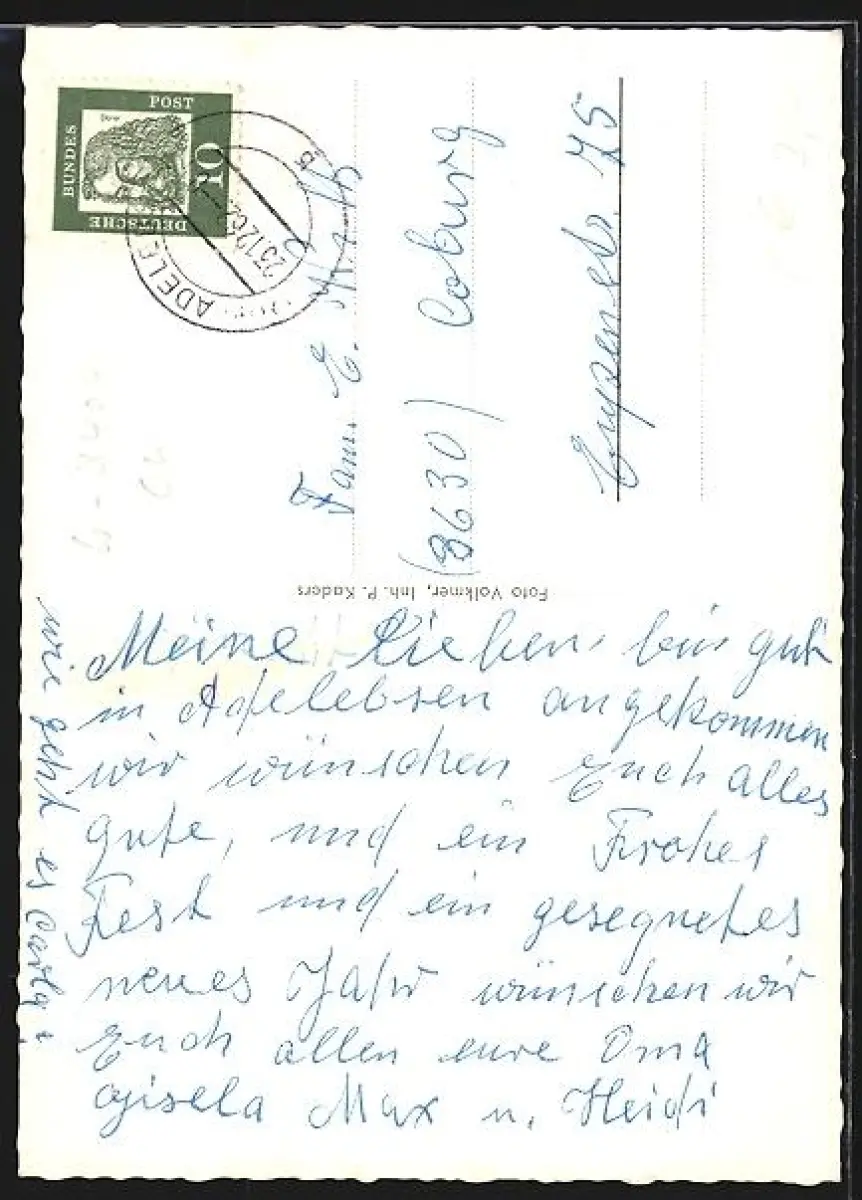 DEUTSCHE
BUNDES
POST
10
23.12.62
Fam. E.
(8630) Coburg
75
Foto Volkmer, Inh. P. Kaders
Meine Lieben, bin gut
in Adelebsen angekommen
wir wünschen Euch alles
gute, und ein Frohes
Fest und ein gesegnetes
neues Jahr wünschen wir
Euch allen eure Oma
Gisela Max u. Heidi
wie geht es